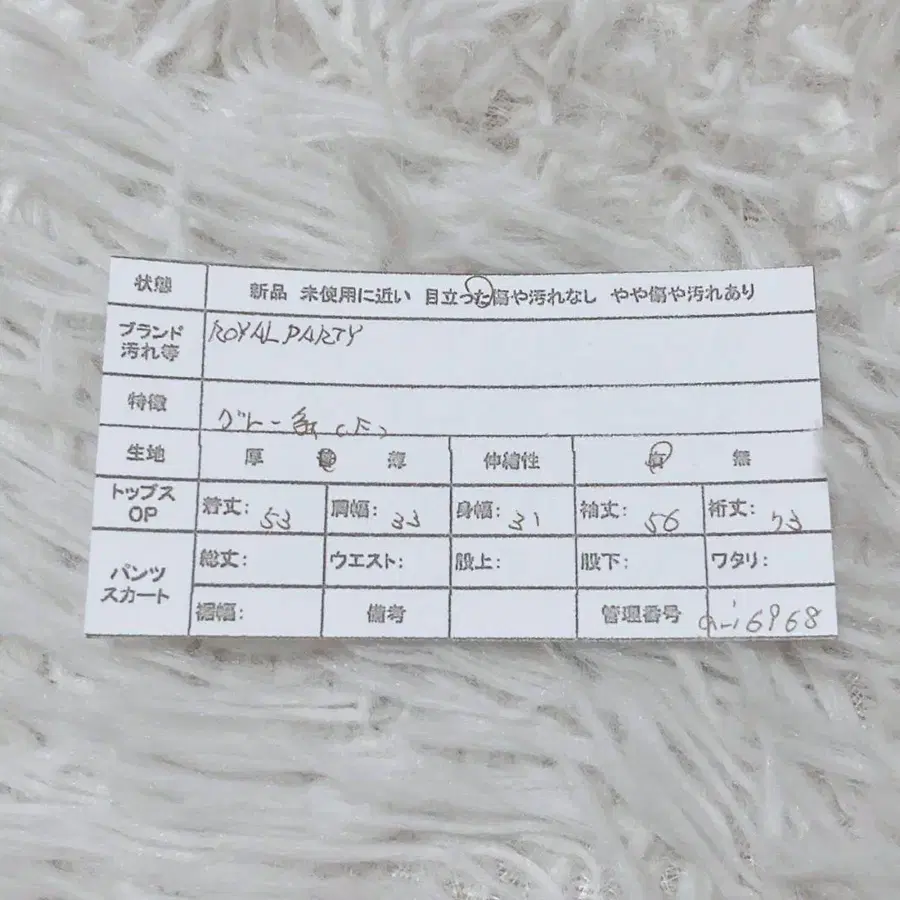 状態 新品 未使用に近い 目立った傷や汚れなし やや傷や汚れあり
ブランド ROYAL PARTY
汚れ等
特徴 グレー系 (F)
生地 厚 普 薄 伸縮性 有 無
トップス 着丈: 53 肩幅: 33 身幅: 31 袖丈: 56 裄丈: 73
OP
総丈: ウエスト: 股上: 股下: ワタリ:
パンツ
スカート
裾幅: 備考 管理番号 a-i6968